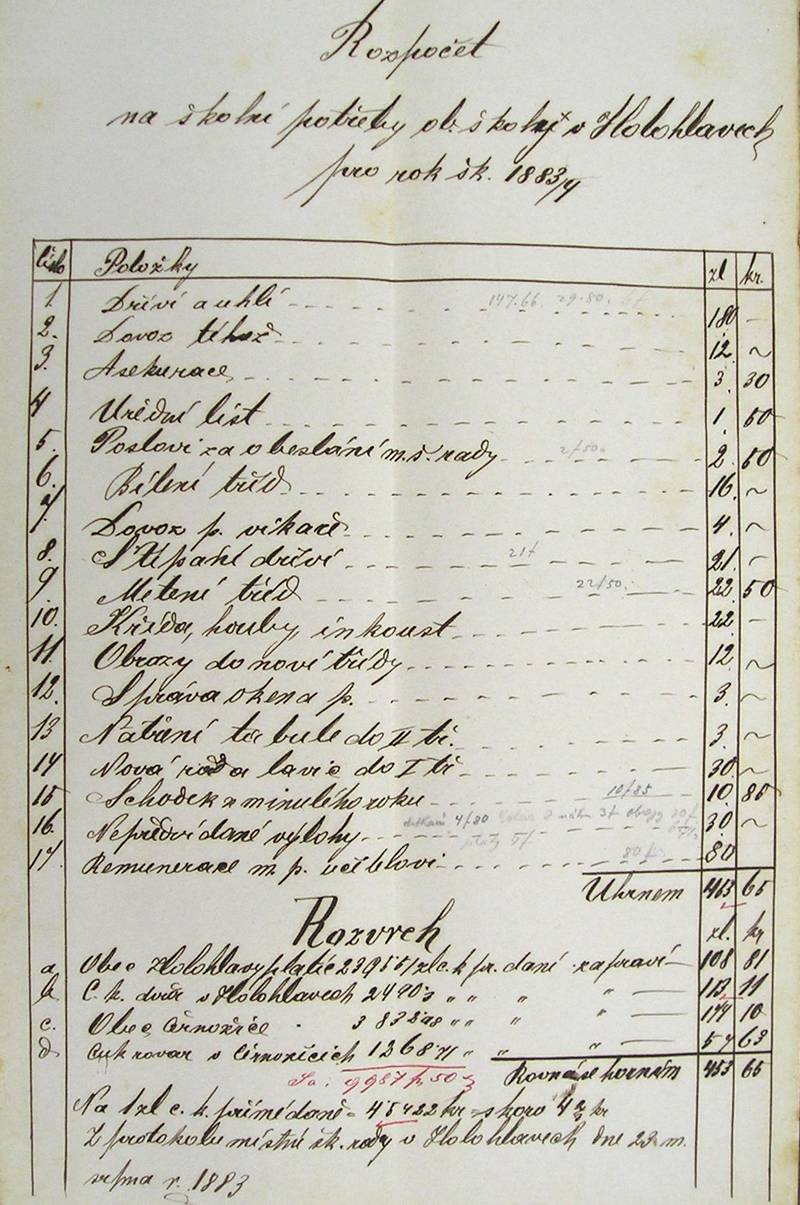 Rozpočet
na školní potřeby ob. školy v Holohlavech
pro rok šk. 1883/4
číslo Položky zl kr.
1 Dříví a uhlí 147.66. 29.80. 180 —
2. Dovoz téhož 12. ~
3. Asekurace 3. 30
4 Úřední list 1. 50
5. Poslovi za obeslání m. š. rady 2/50. 2. 50
6. Bílení tříd 16. ~
7. Dovoz p. vikáře 4. ~
8. Štípání dříví 21 f 21. —
9. Metení tříd 22/50. 22. 50
10. Křída, houby, inkoust 22 —
11. Obrazy do nové třídy 12. ~
12. Správa oken a p. 3. ~
13 Natření tabule do II tř. 3. ~
14 Nová řada lavic do I tř 30 ~
15 Schodek z minulého roku 10/85 10. 85
16. Nepředvídané výlohy 4/80 30 ~
17. Remunerace m. p. učiteloví 80 f 80
Úhrnem 453 65
Rozvrch zl. kr
a Obec Holohlavy platíc zl c. k. př. daní zapraví 108 81
b. C. k. dvůr v Holohlavech " " " " 113 11
c. Obec Černožice " " " " 174 10
d Cukrovar v Černožicích " " " 57 63
Sa: Rovná se horním 453 65
Na 1 zl c. k. přímé daně = 4·5422 kr = skoro kr
Z protokolu místní šk. rady v Holohlavech dne 23. m.
srpna r. 1883